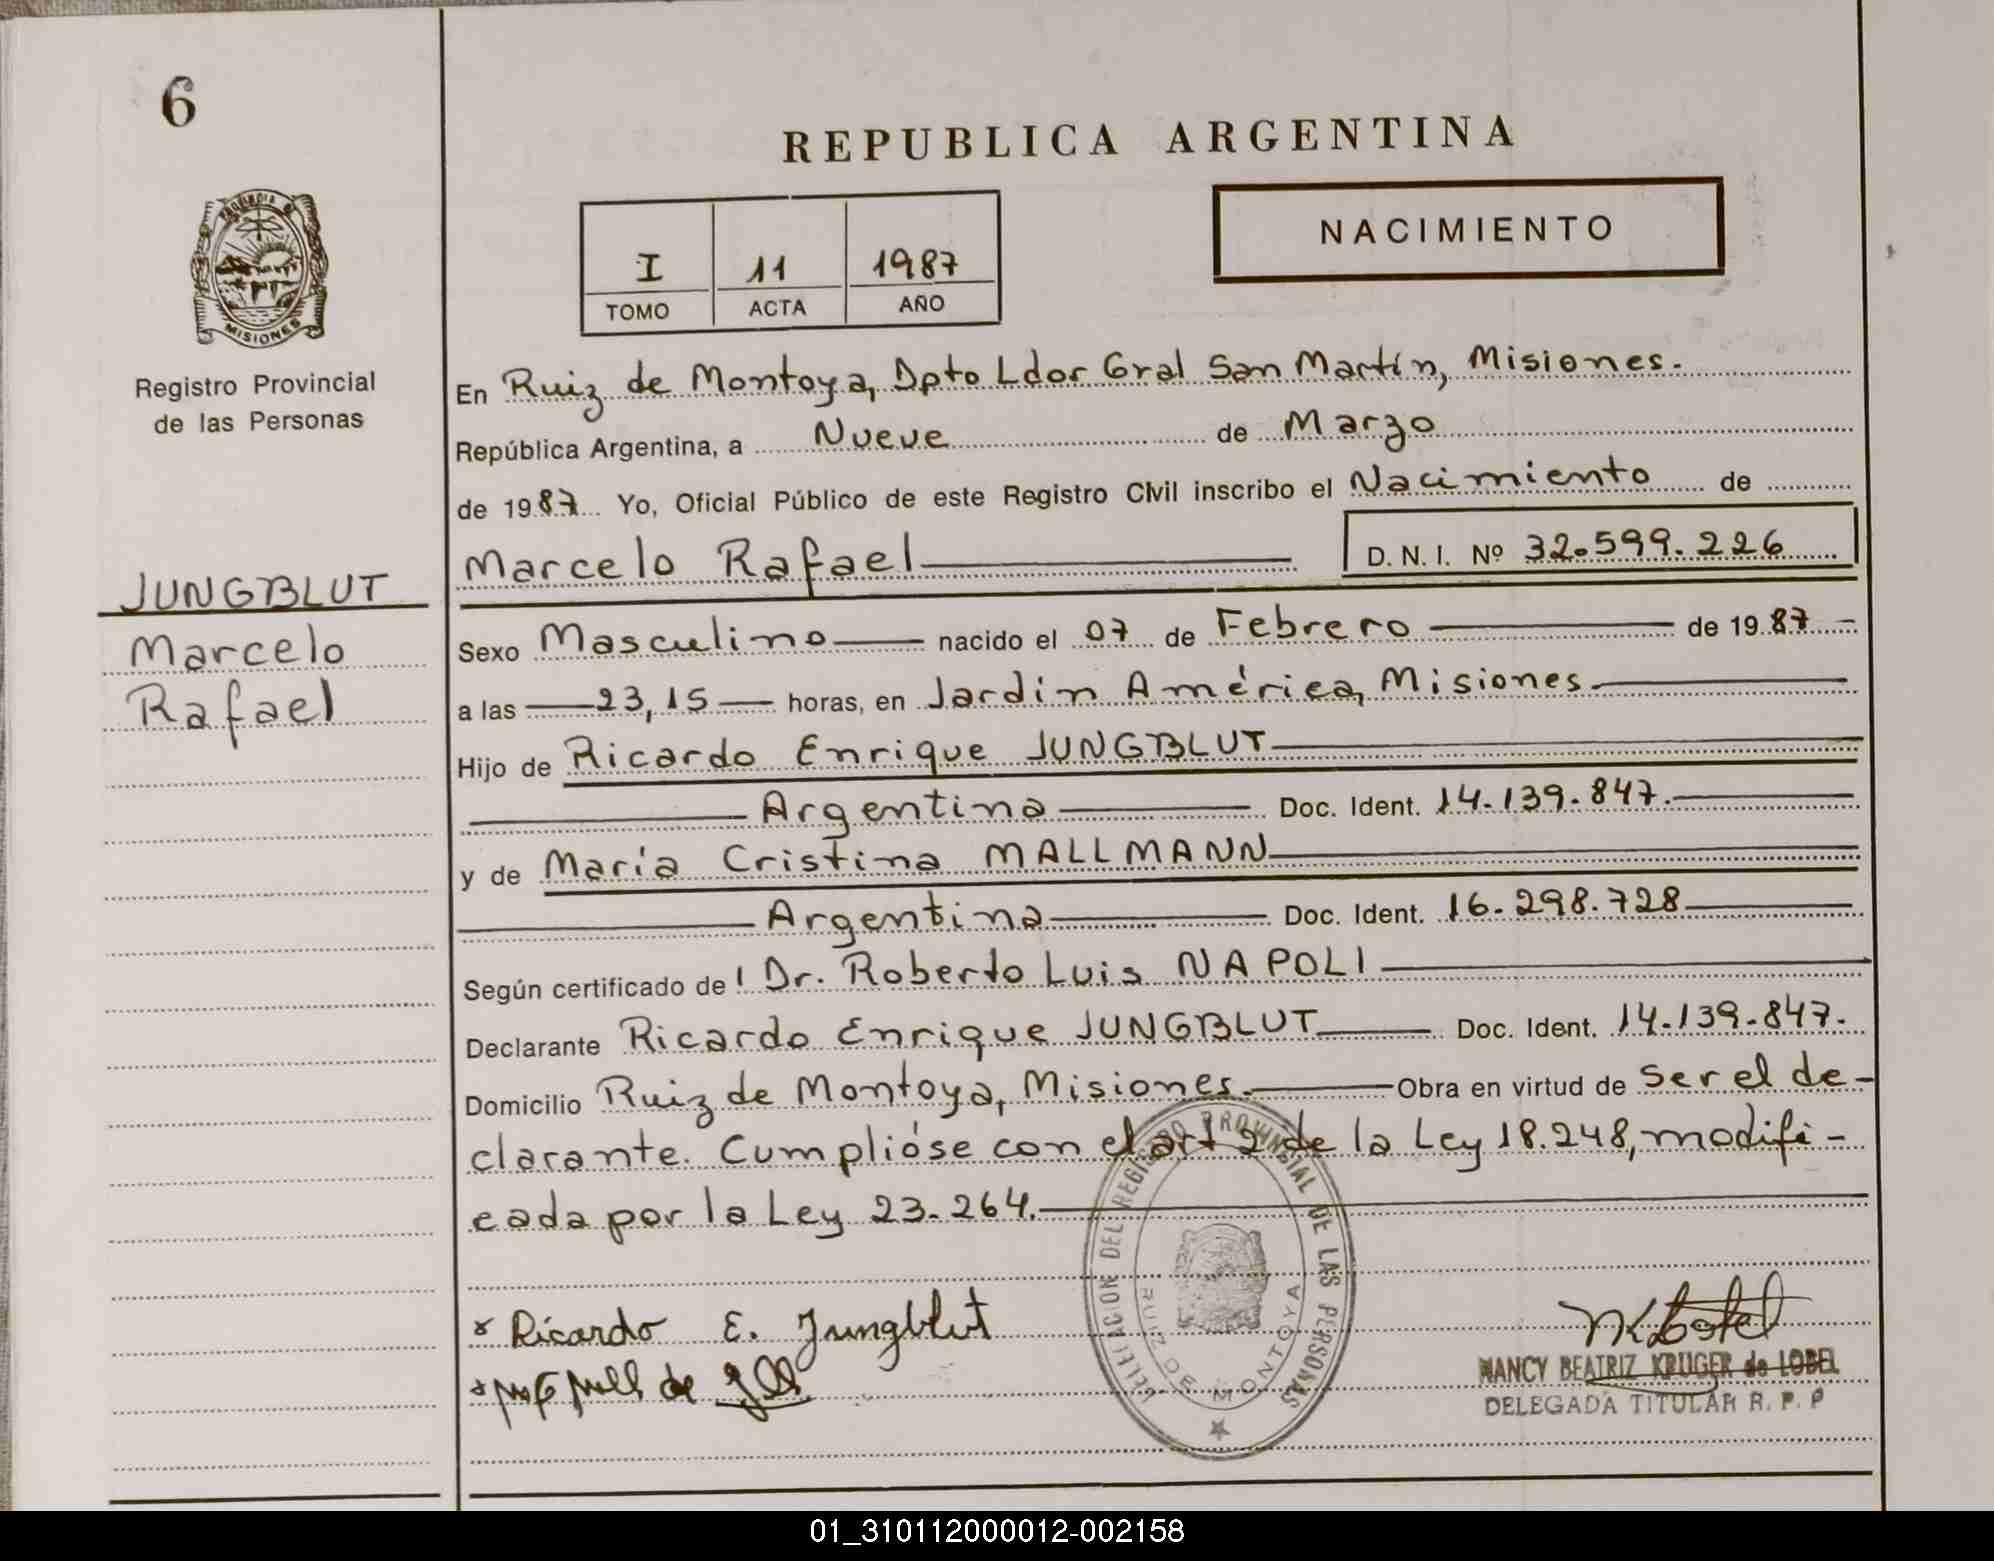 6
REPUBLICA ARGENTINA
NACIMIENTO
I 11 1987
TOMO ACTA AÑO
PROVINCIA DE
MISIONES
Registro Provincial
de las Personas
JUNGBLUT
Marcelo
Rafael
En Ruiz de Montoya, Dpto Ldor Gral San Martín, Misiones.
República Argentina, a Nueve de Marzo
de 1987 Yo, Oficial Público de este Registro Civil inscribo el Nacimiento de
Marcelo Rafael D.N.I. Nº 32.599.226
Sexo Masculino nacido el 07 de Febrero de 1987
a las 23,15 horas, en Jardín América, Misiones
Hijo de Ricardo Enrique JUNGBLUT
Argentina Doc. Ident. 14.139.847.
y de María Cristina MALLMANN
Argentina Doc. Ident. 16.298.728
Según certificado de Dr. Roberto Luis NAPOLI
Declarante Ricardo Enrique JUNGBLUT Doc. Ident. 14.139.847.
Domicilio Ruiz de Montoya, Misiones. Obra en virtud de Ser el de-
clarante. Cumplióse con el art 2 de la Ley 18.248, modifi-
cada por la Ley 23.264.
DELEGACION DEL REGISTRO PROVINCIAL DE LAS PERSONAS
RUIZ DE MONTOYA
x Ricardo E. Jungblut
NANCY BEATRIZ KRUGER de LOBEL
DELEGADA TITULAR R. P. P
01_310112000012-002158